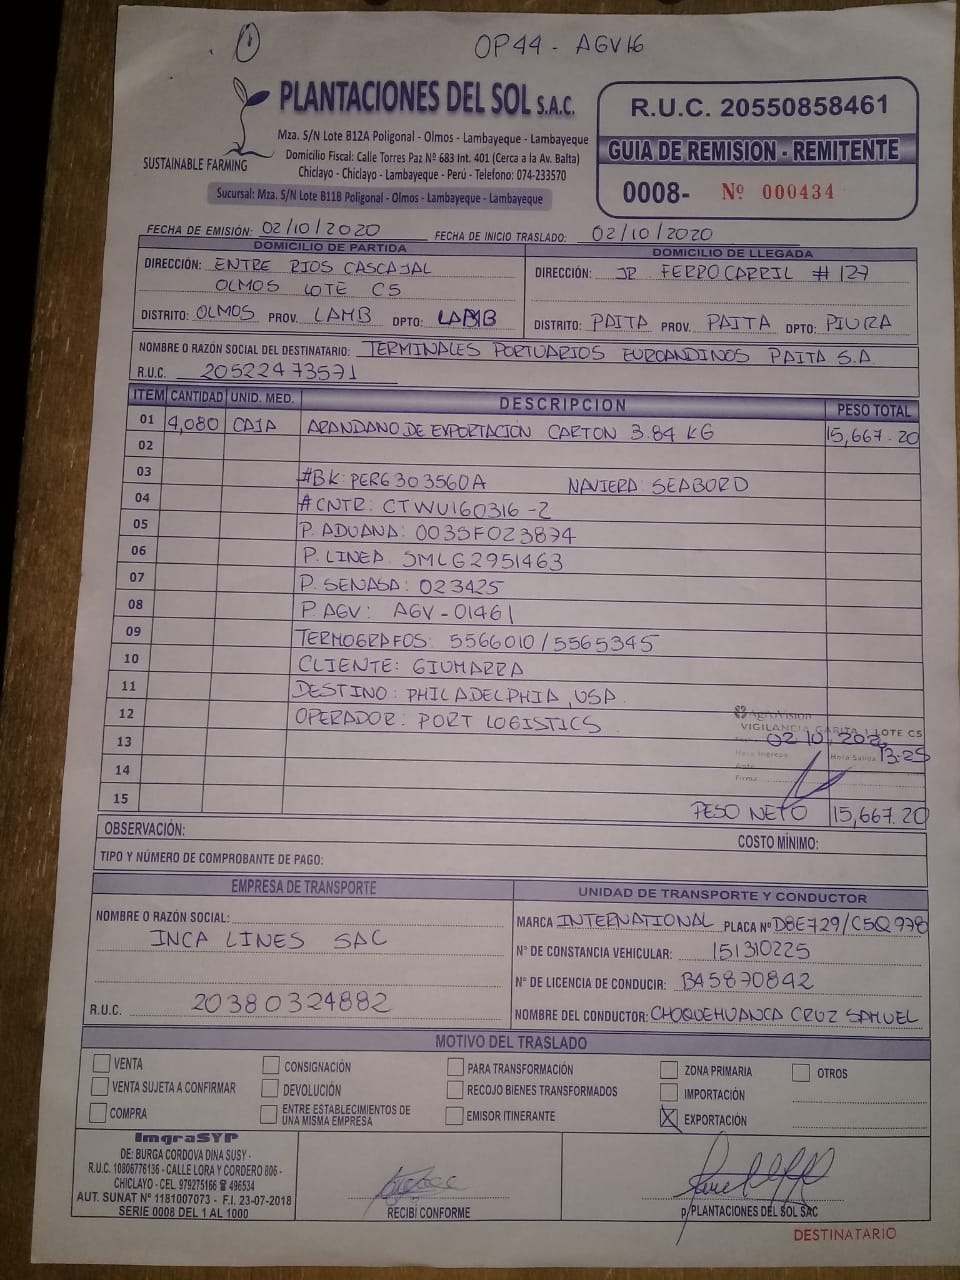 1
OP44 - AGV16
PLANTACIONES DEL SOL S.A.C.
Mza. S/N Lote B12A Poligonal - Olmos - Lambayeque - Lambayeque
Domicilio Fiscal: Calle Torres Paz Nº 683 Int. 401 (Cerca a la Av. Balta)
Chiclayo - Chiclayo - Lambayeque - Perú - Telefono: 074-233570
SUSTAINABLE FARMING
Sucursal: Mza. S/N Lote B11B Poligonal - Olmos - Lambayeque - Lambayeque
R.U.C. 20550858461
GUIA DE REMISION - REMITENTE
0008- Nº 000434
FECHA DE EMISIÓN: 02/10/2020 FECHA DE INICIO TRASLADO: 02/10/2020
DOMICILIO DE PARTIDA
DIRECCIÓN: ENTRE RIOS CASCAJAL
OLMOS LOTE C5
DISTRITO: OLMOS PROV. LAMB DPTO: LAMB
DOMICILIO DE LLEGADA
DIRECCIÓN: JR FERROCARRIL # 127
DISTRITO: PAITA PROV. PAITA DPTO: PIURA
NOMBRE O RAZÓN SOCIAL DEL DESTINATARIO: TERMINALES PORTUARIOS EUROANDINOS PAITA S.A
R.U.C. 20522473571
ITEM CANTIDAD UNID. MED. DESCRIPCION PESO TOTAL
01 4,080 CAJA ARANDANO DE EXPORTACIÓN CARTON 3.84 KG 15,667.20
02
03 #BK: PER6303560A NAVIERA SEABORD
04 # CNTR: CTWU160316-2
05 P. ADUANA: 0035F023874
06 P. LINEA SMLG2951463
07 P. SENASA: 023425
08 P. AGV: AGV-01461
09 TERMOGRAFOS: 5566010/5565345
10 CLIENTE: GIUMARRA
11 DESTINO: PHILADELPHIA, USA
12 OPERADOR: PORT LOGISTICS
13
14
15 PESO NETO 15,667.20
AgroVision
VIGILANCIA GARITA 1 LOTE C5
02 10 2020
Hora Ingreso Hora Salida 13:25
Firma
OBSERVACIÓN:
COSTO MÍNIMO:
TIPO Y NÚMERO DE COMPROBANTE DE PAGO:
EMPRESA DE TRANSPORTE
NOMBRE O RAZÓN SOCIAL:
INCA LINES SAC
R.U.C. 20380324882
UNIDAD DE TRANSPORTE Y CONDUCTOR
MARCA INTERNATIONAL PLACA Nº D8E729/C5Q978
N° DE CONSTANCIA VEHICULAR: 151310225
N° DE LICENCIA DE CONDUCIR: BA5870842
NOMBRE DEL CONDUCTOR: CHOQUEHUANCA CRUZ SAMUEL
MOTIVO DEL TRASLADO
VENTA
VENTA SUJETA A CONFIRMAR
COMPRA
CONSIGNACIÓN
DEVOLUCIÓN
ENTRE ESTABLECIMIENTOS DE
UNA MISMA EMPRESA
PARA TRANSFORMACIÓN
RECOJO BIENES TRANSFORMADOS
EMISOR ITINERANTE
ZONA PRIMARIA
IMPORTACIÓN
X EXPORTACIÓN
OTROS
ImgraSYP
DE: BURGA CORDOVA DINA SUSY -
R.U.C. 10806776136 - CALLE LORA Y CORDERO 806 -
CHICLAYO - CEL. 979275166 ☎ 496534
AUT. SUNAT Nº 1181007073 - F.I. 23-07-2018
SERIE 0008 DEL 1 AL 1000
RECIBÍ CONFORME
p/PLANTACIONES DEL SOL SAC
DESTINATARIO